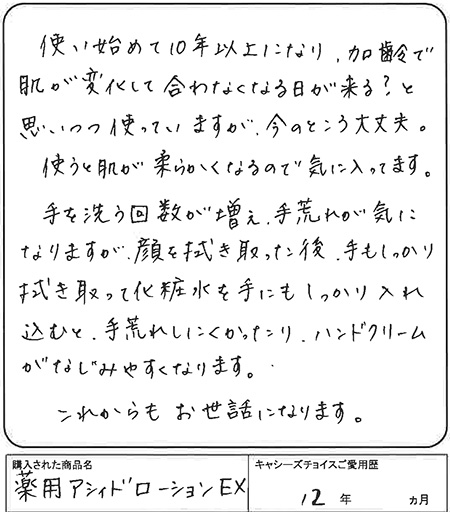 使い始めて10年以上になり、加齢で
肌が変化して合わなくなる日が来る?と
思いつつ使っていますが、今のところ大丈夫。
使うと肌が柔らかくなるので気に入ってます。
手を洗う回数が増え、手荒れが気に
なりますが、顔を拭き取った後、手もしっかり
拭き取って化粧水を手にもしっかり入れ
込むと、手荒れしにくかったり、ハンドクリーム
がなじみやすくなります。
これからもお世話になります。
購入された商品名
薬用アシィドローションEX
キャシーズチョイスご愛用歴
12年 ヵ月